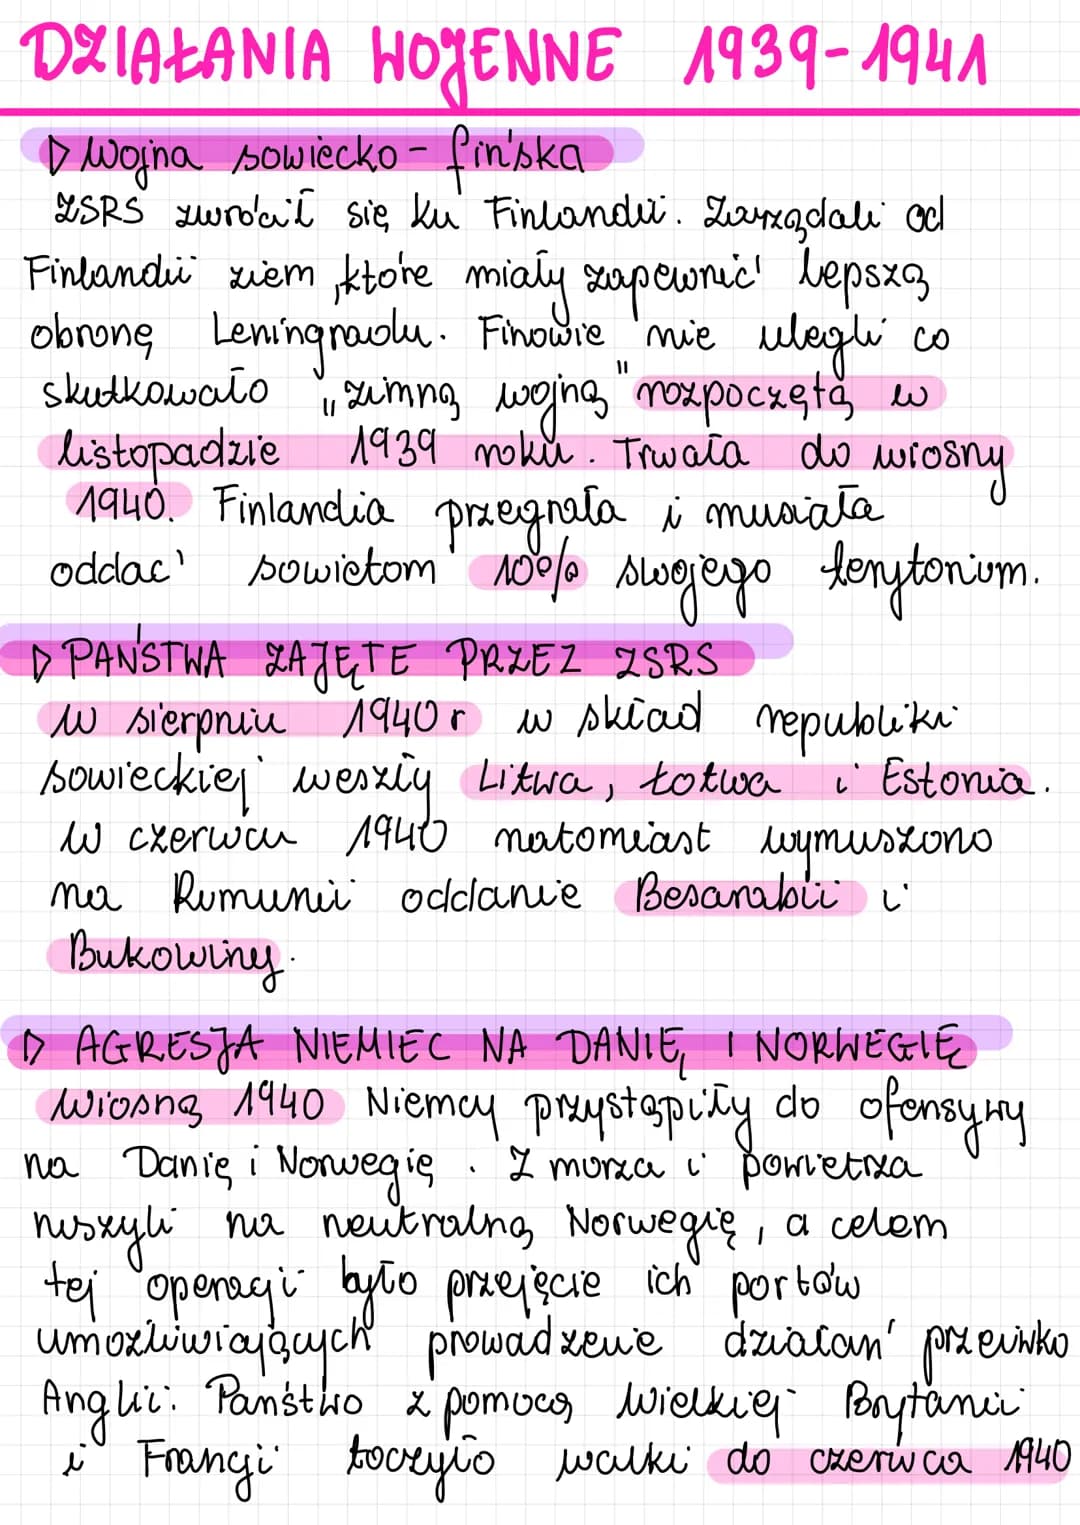 DZIAŁANIA WOJENNE 1939-1941
▷ Wojna sowiecko - fińska
ZSRS zwrócił się ku Finlandii. Zarządali od
Finlandii ziem, które miały zapewnić lepszą
obronę Leningradu. Finowie nie ulegli co
skutkowało „zimną wojną" rozpoczętą w
listopadzie 1939 roku. Trwała do wiosny
1940. Finlandia przegrała i musiała
oddać sowietom 10% swojego terytorium.
▷ PAŃSTWA ZAJĘTE PRZEZ ZSRS
W sierpniu 1940r w skład republiki
sowieckiej weszły Litwa, Łotwa i Estonia.
W czerwcu 1940 natomiast wymuszono
na Rumunii oddanie Besarabii i
Bukowiny.
▷ AGRESJA NIEMIEC NA DANIĘ I NORWEGIĘ
Wiosną 1940 Niemcy przystąpiły do ofensywy
na Danię i Norwegię. Z morza i powietrza
ruszyli na neutralną Norwegię, a celem
tej operacji było przejęcie ich portów
umożliwiających prowadzenie działań przeciwko
Anglii. Państwo z pomocą Wielkiej Brytanii
i Francji toczyło walki do czerwca 1940